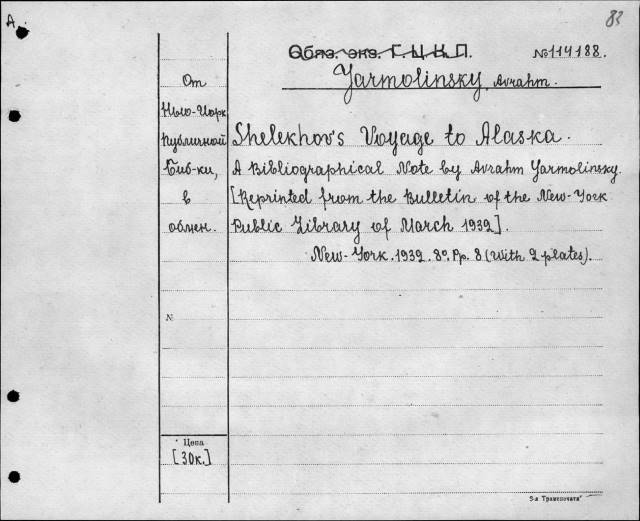 А.
83
Обяз. экз. Г. Ц. К. П.
№114188.
Yarmolinsky, Avrahm.
От
Нью-Иорк.
публичной
Биб-ки,
в
обмен.
Shelekhov's Voyage to Alaska.
A Bibliographical Note by Avrahm Yarmolinsky.
[Reprinted from the Bulletin of the New-York
Public Library of March 1932].
New-York. 1932. 8º. Pp. 8 (with 2 plates).
№
Цена
[30к.]
5-я Транспечати"